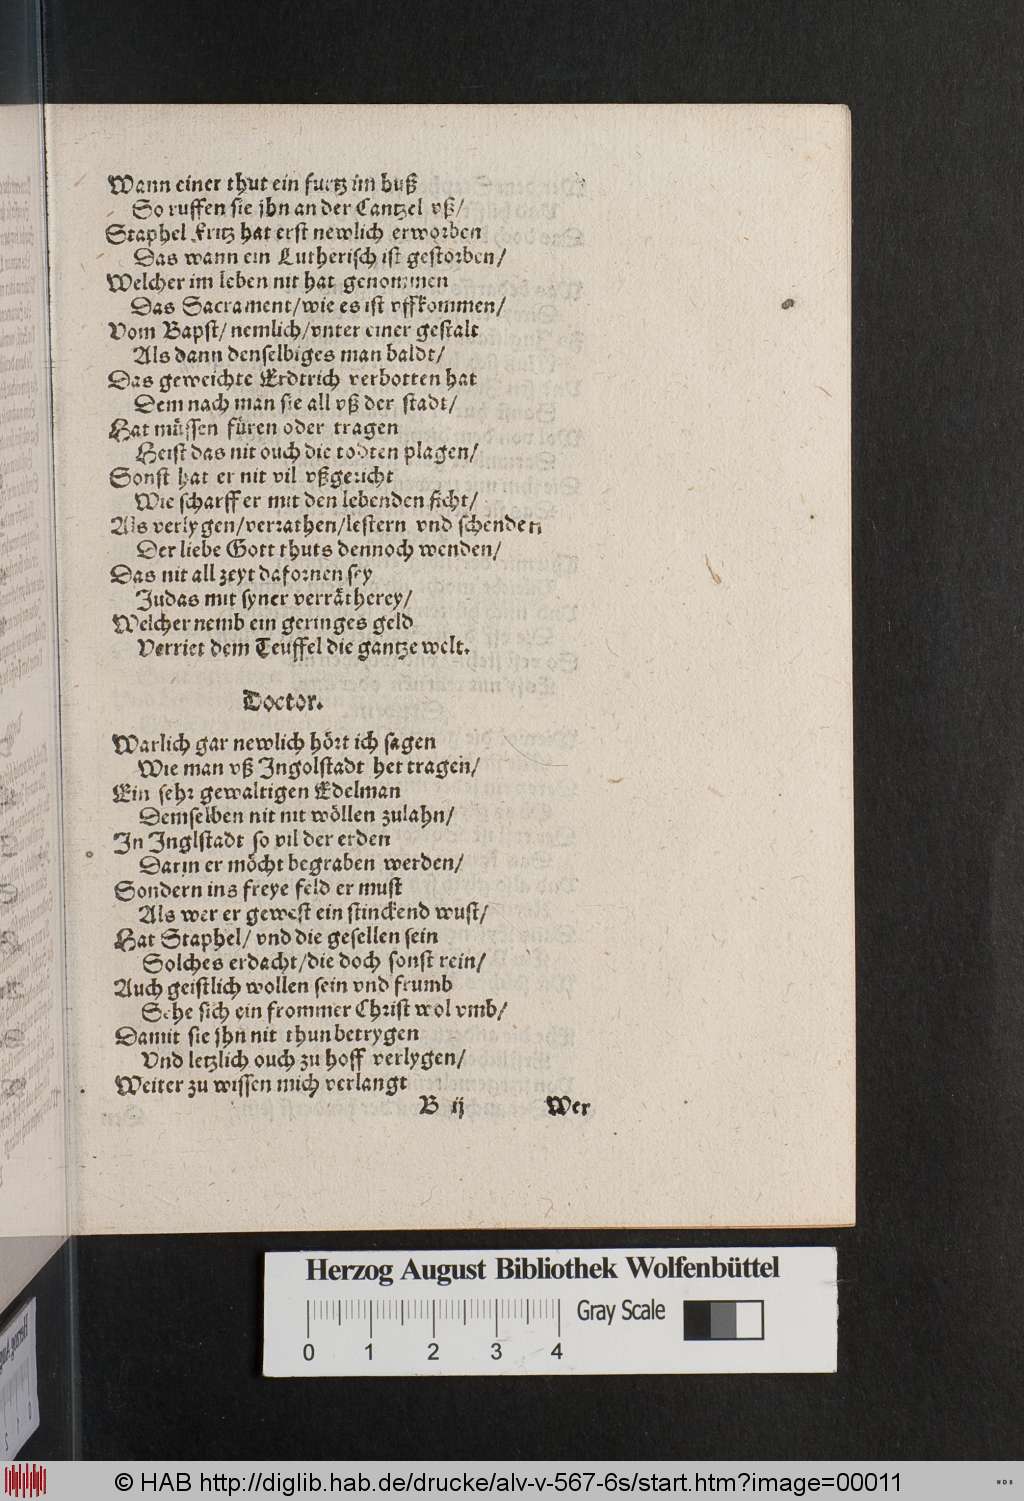 Wann einer thut ein furtz im huß
So ruffen sie jhn an der Cantzel vß/
Staphel Fritz hat erst newlich erworben
Das wann ein Lutherisch ist gestorben/
Welcher im leben nit hat genommen
Das Sacrament/wie es ist vffkommen/
Vom Bapst/ nemlich/vnter einer gestalt
Als dann denselbiges man baldt/
Das geweichte Erdtrich verbotten hat
Dem nach man sie all vß der stadt/
Hat müssen füren oder tragen
Heist das nit ouch die todten plagen/
Sonst hat er nit vil vßgericht
Wie scharff er mit den lebenden ficht/
Als verlygen/verrathen/lestern vnd schenden
Der liebe Gott thuts dennoch wenden/
Das nit all zeyt dafornen sey
Judas mit syner verrätherey/
Welcher nemb ein geringes geld
Verriet dem Teuffel die gantze welt.
Doctor.
Warlich gar newlich hört ich sagen
Wie man vß Ingolstadt het tragen/
Ein sehr gewaltigen Edelman
Demselben nit nit wöllen zulahn/
In Inglstadt so vil der erden
Darin er möcht begraben werden/
Sondern ins freye feld er must
Als wer er gewest ein stinckend wust/
Hat Staphel/ vnd die gesellen sein
Solches erdacht/die doch sonst rein/
Auch geistlich wollen sein vnd frumb
Sehe sich ein frommer Christ wol vmb/
Damit sie jhn nit thun betrygen
Vnd letzlich ouch zu hoff verlygen/
Weiter zu wissen mich verlangt
B ij Wer
Herzog August Bibliothek Wolfenbüttel
Gray Scale
0 1 2 3 4
© HAB http://diglib.hab.de/drucke/alv-v-567-6s/start.htm?image=00011